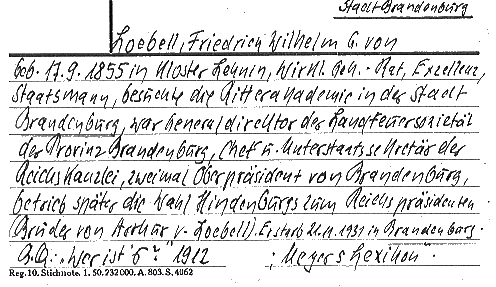 Stadt Brandenburg
Loebell, Friedrich Wilhelm v. von
Geb. 17.9.1855 in Kloster Lehnin, Wirkl. Geh.-Rat, Exzellenz,
Staatsmann, besuchte die Ritterakademie in der Stadt
Brandenburg, war Generaldirektor der Landfeuersozietät
der Provinz Brandenburg, Chef u. Unterstaatssekretär der
Reichskanzlei, zweimal Oberpräsident von Brandenburg,
betrieb später die Wahl Hindenburgs zum Reichspräsidenten
(Bruder von Arthur v. Loebell). Er starb 21.11.1931 in Brandenburg.
"Wer ist's?" 1912 ; "Meyers Lexikon".
Reg. 10. Stichnote. 1. 50. 232000. A. 803. S. 4062